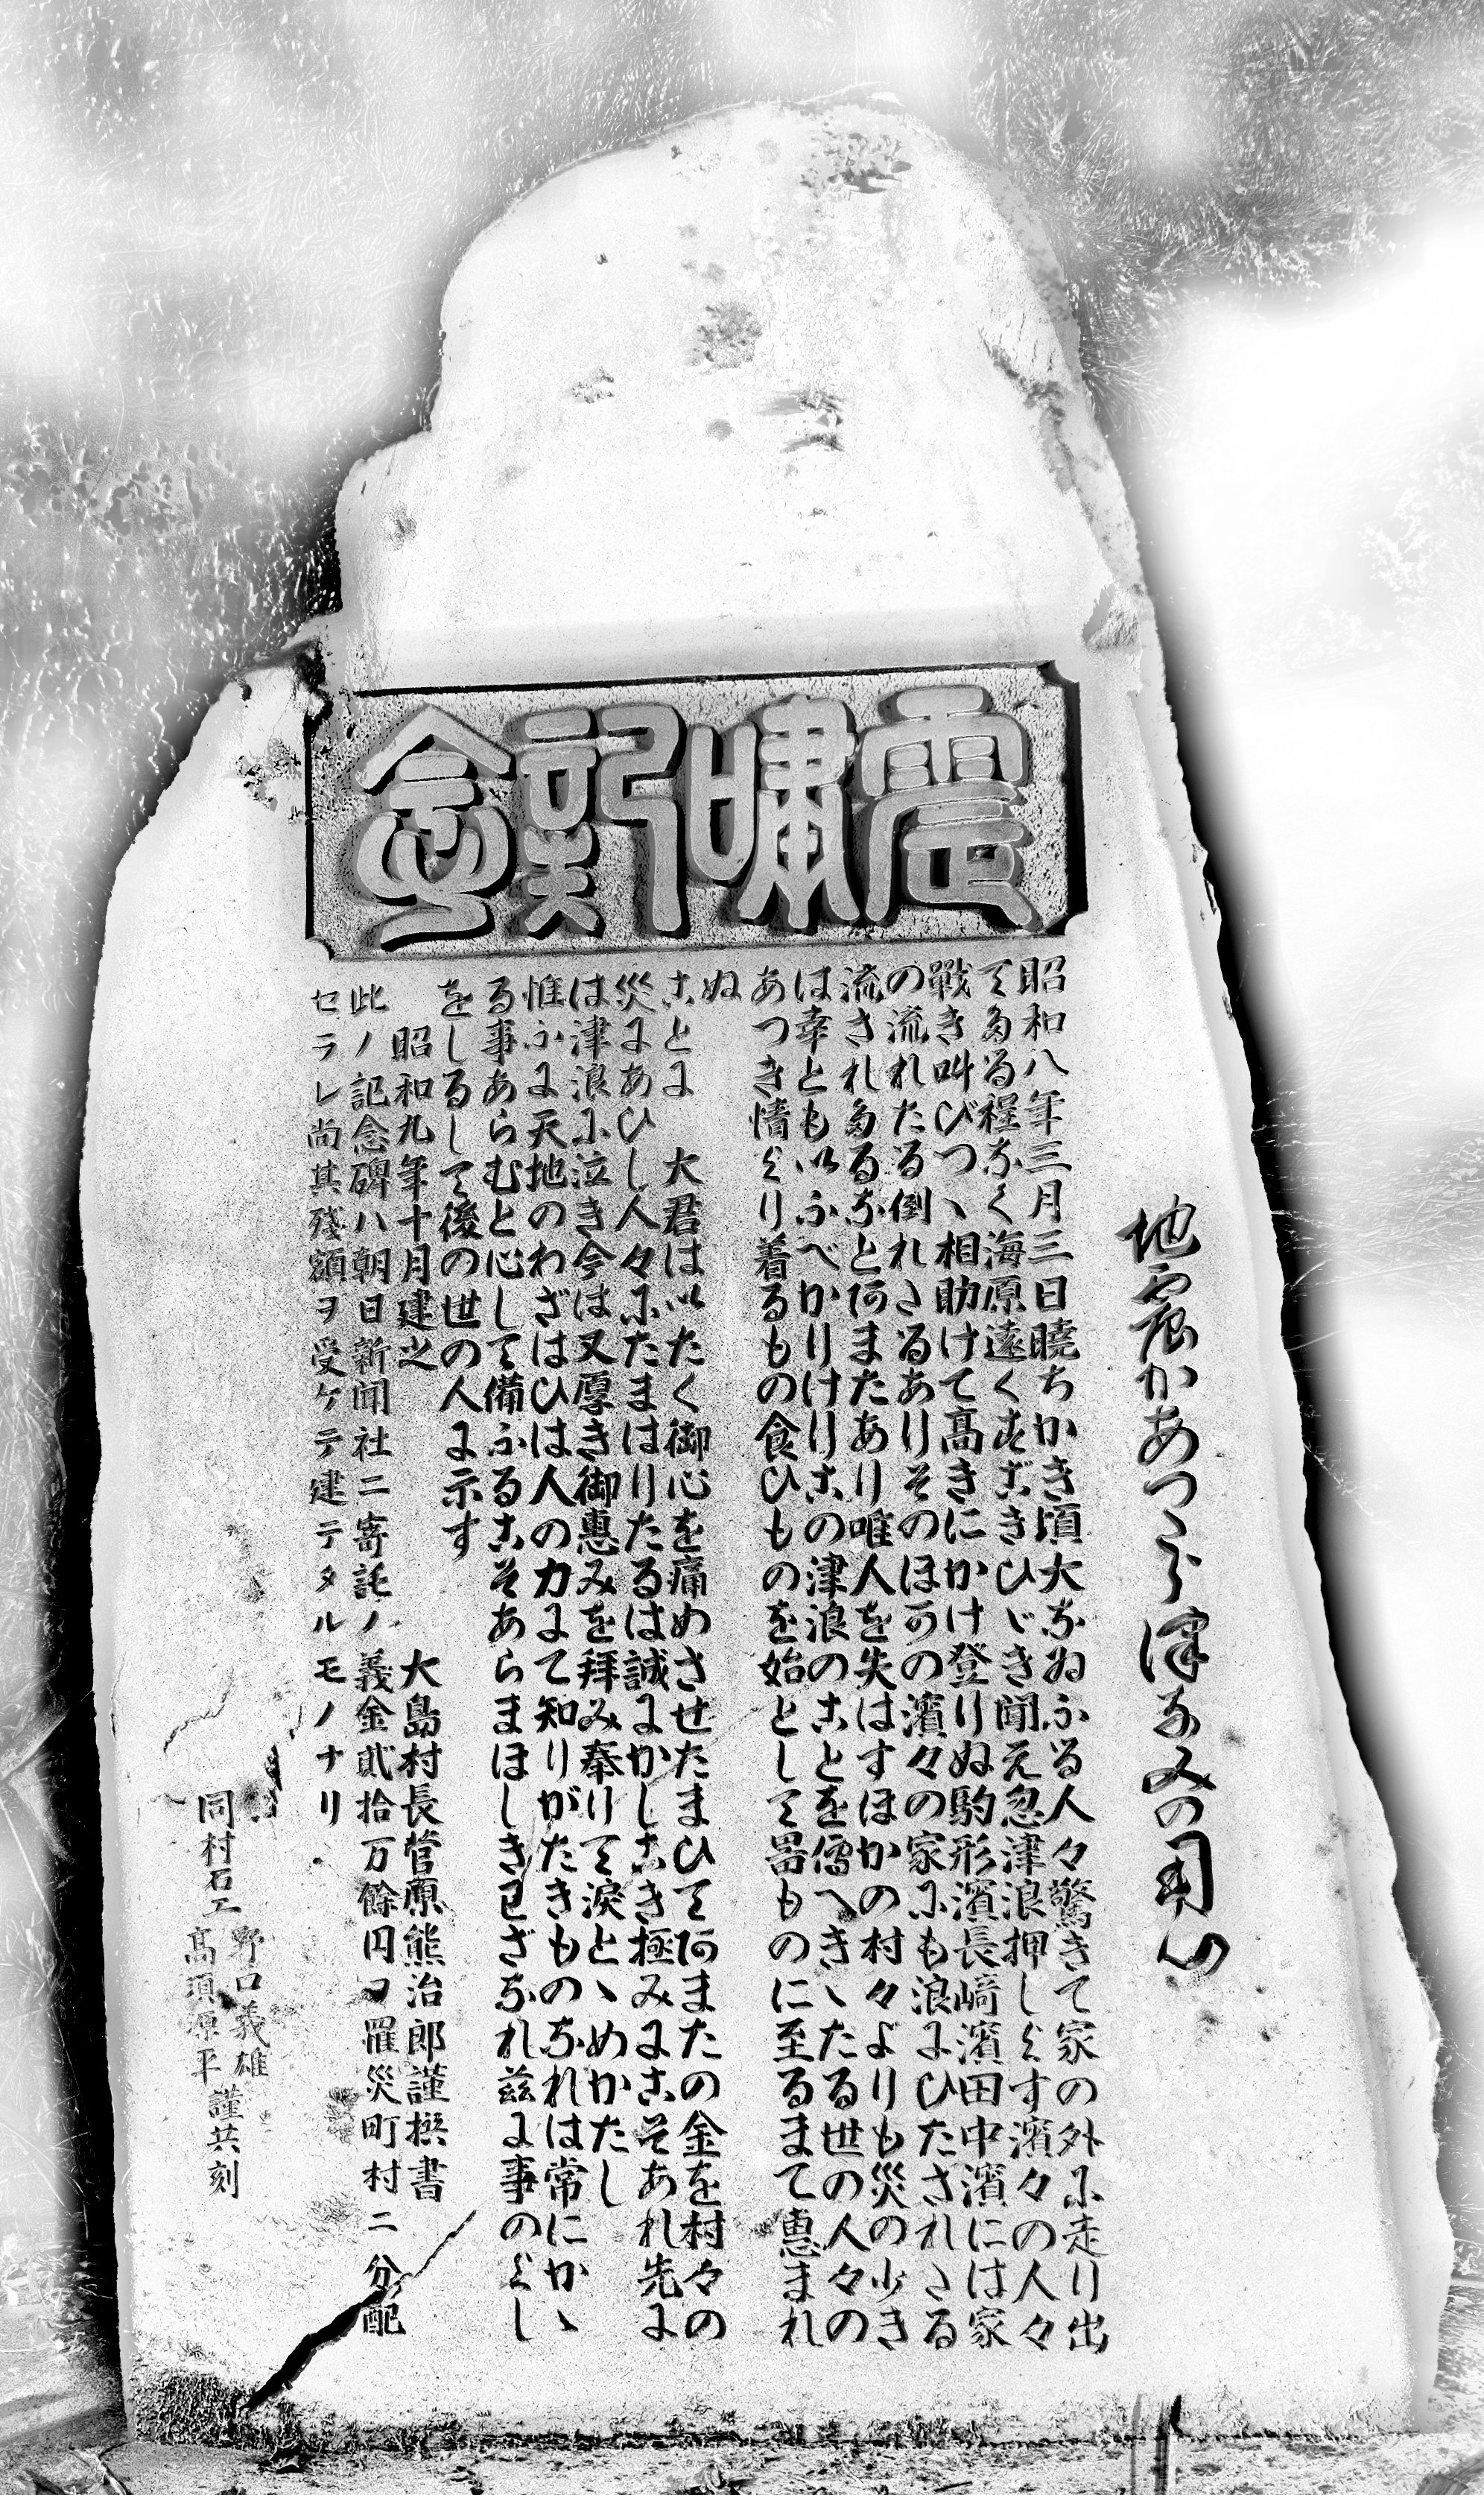 震嘯記念
地震かあつたら津なみの用心
昭和八年三月三日曉ちかき頃大なゐふる人々驚きて家の外に走り出
てたる程なく海原遠くきひゞき聞え忽津浪押しよす濱々の人々
戰き叫びつゝ相助けて高きにかけ登りぬ駒形濱長崎濱田中濱には家
の流れたる倒れたるありそのほかの濱々の家にも浪にひたされたる
流されたるなとあまたあり唯人を失はすほかの村々よりも災の少き
は幸ともいふべかりけりこの津浪のことを傳へきゝたる世の人々の
あつき情より着るもの食ひものを始として器ものに至るまて惠まれ
ぬ
ことに 大君はいたく御心を痛めさせたまひてあまたの金を村々の
災にあひし人々にたまはりたるは誠にかしこき極みにこそあれ先に
は津浪に泣き今は又厚き御惠みを拜み奉りて涙とゝめかたし
惟ふに天地のわざはひは人の力にて知りがたきものなれは常にかゝ
る事あらむと心して備ふるこそあらまほしきわざなれ茲に事のよし
をしるして後の世の人に示す
昭和九年十月建之 大島村長菅原熊治郎謹撰書
此ノ記念碑ハ朝日新聞社ニ寄託ノ義金貳拾万餘円ヲ罹災町村ニ分配
セラレ尚其殘額ヲ受ケテ建テタルモノナリ
同村石工 野口義雄
高須源平 謹共刻